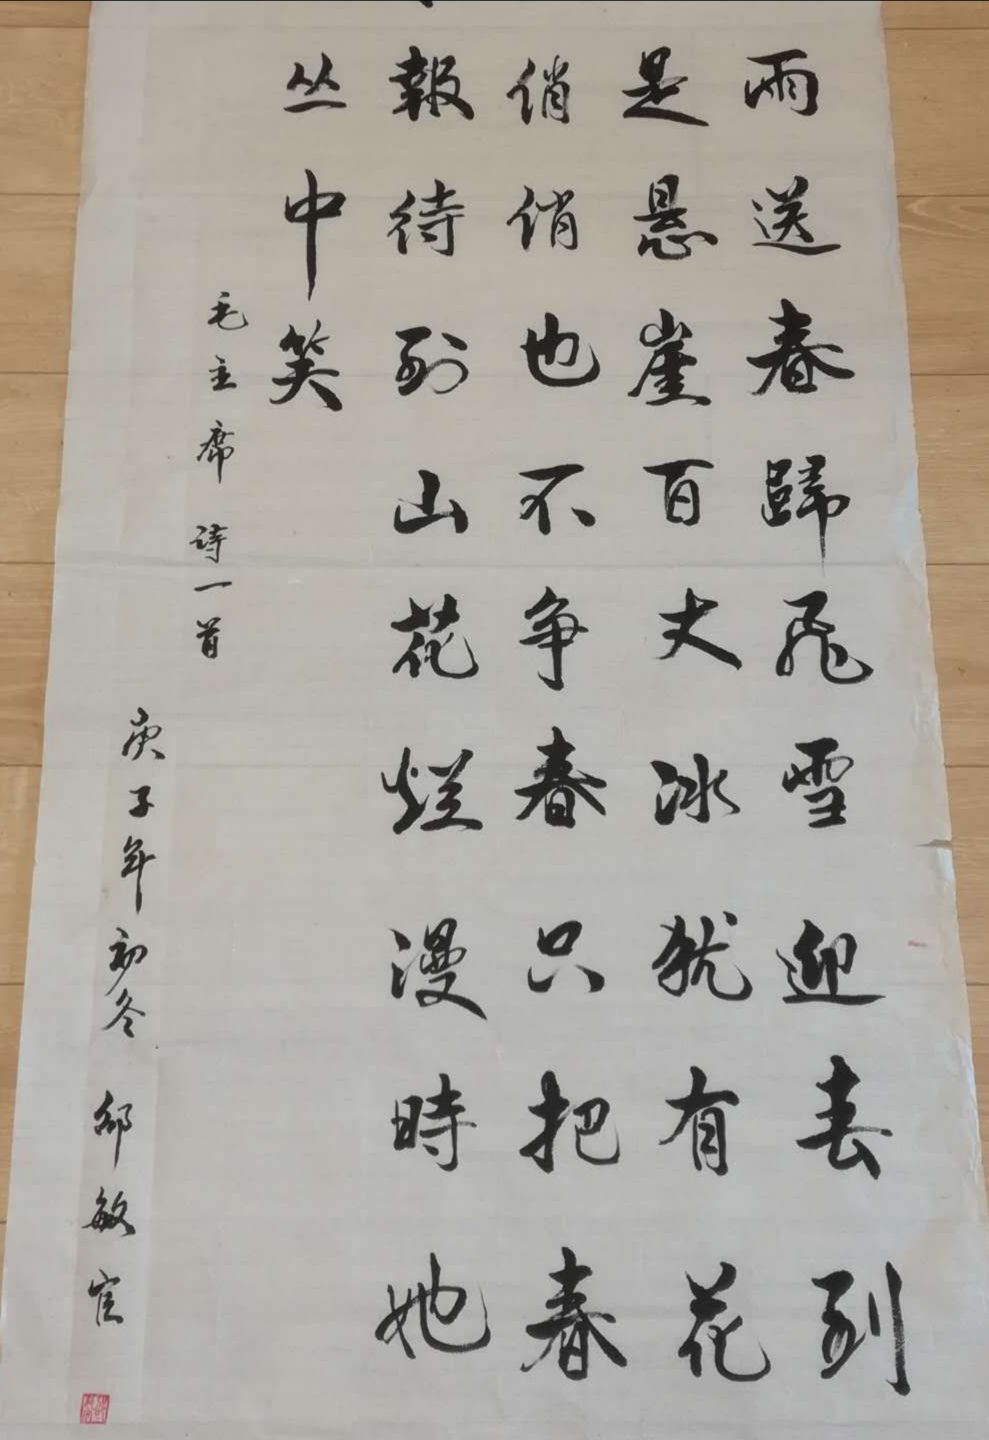 雨送春歸飛雪迎春到
是悬崖百丈冰犹有花
俏俏也不争春只把春
報待到山花烂漫時她
丛中笑
毛主席 詩一首
庚子年初冬 邵敏官